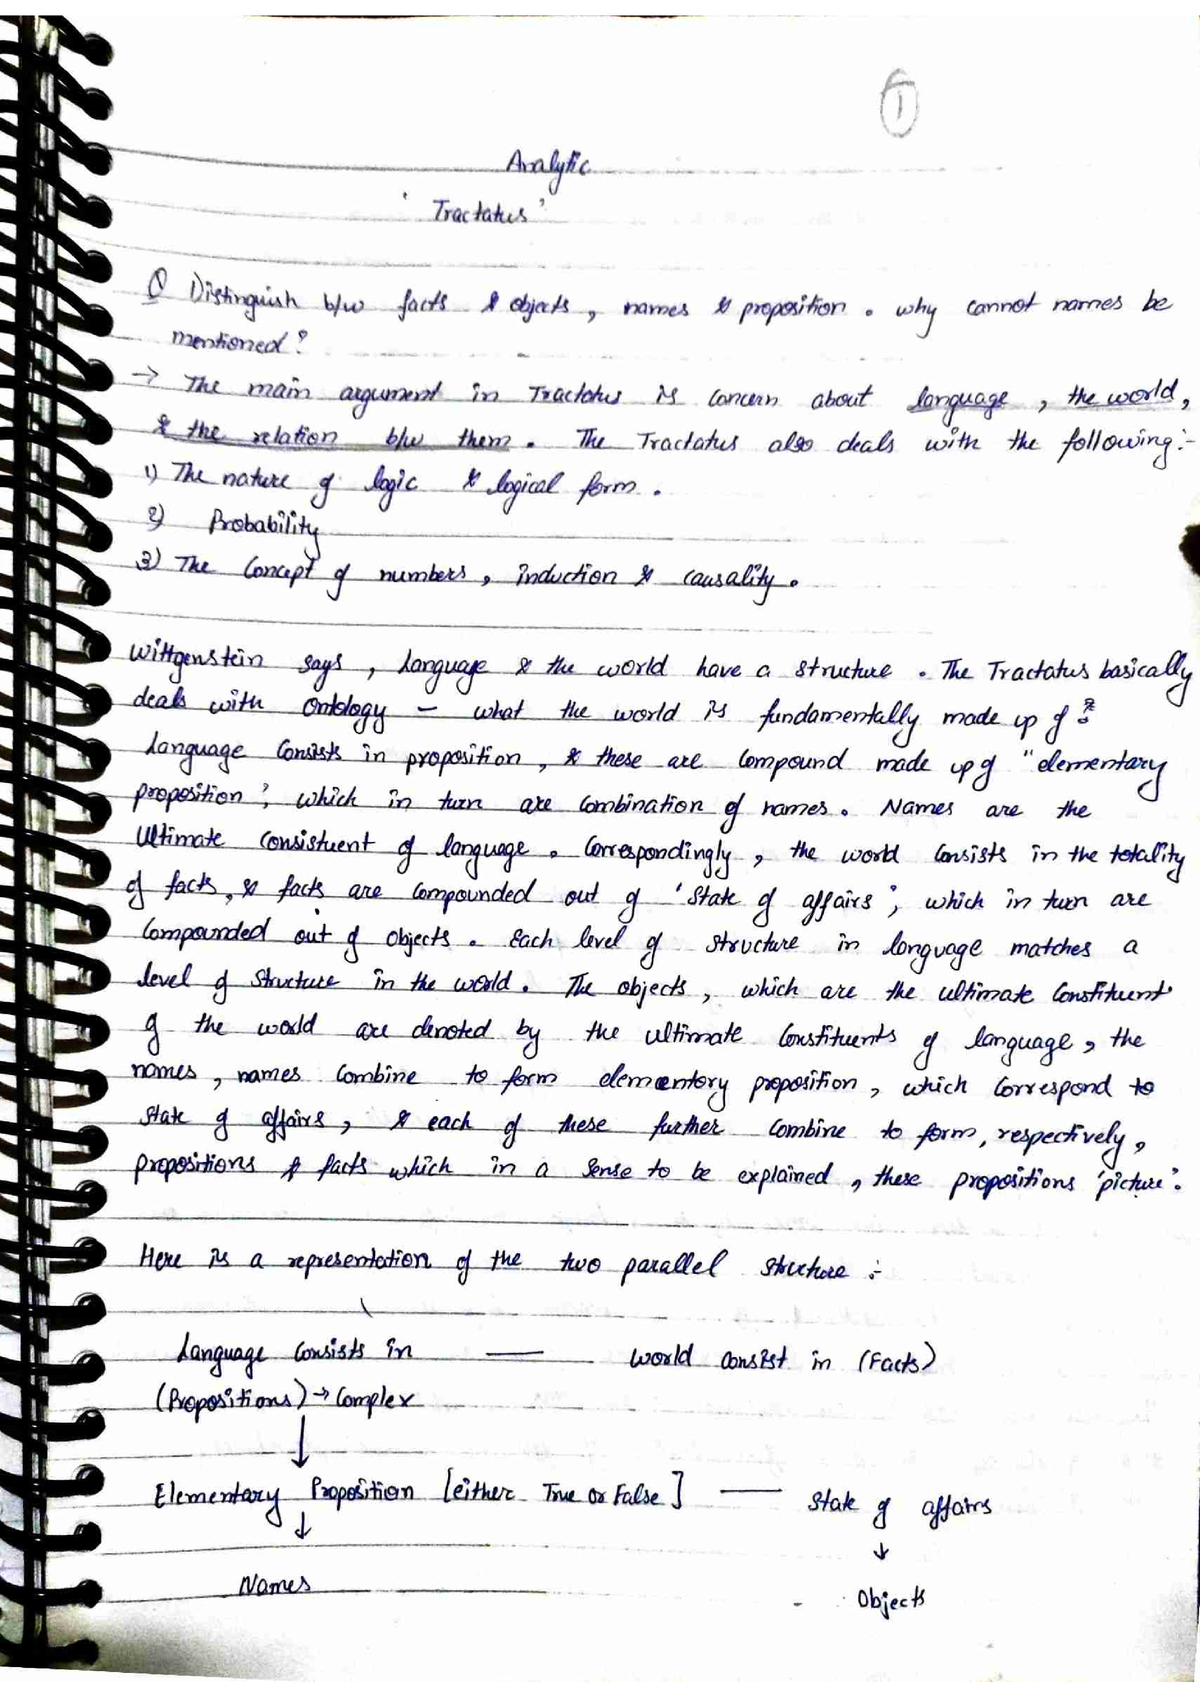 1
Analytic
'Tractatus'
Q Distinguish b/w facts & objects, names & proposition. why cannot names be
mentioned?
→ The main argument in Tractatus is concern about language, the world,
& the relation b/w them. The Tractatus also deals with the following:-
1) The nature of logic & logical form.
2) Probability
3) The Concept of numbers, induction & causality.
Wittgenstein says, language & the world have a structure. The Tractatus basically
deals with Ontology - what the world is fundamentally made up of?
Language Consists in proposition, & these are compound made up of "elementary
proposition", which in turn are combination of names. Names are the
ultimate consistuent of language. Correspondingly, the world consists in the totality
of facts, & facts are compounded out of 'State of affairs', which in turn are
Compounded out of Objects. Each level of structure in language matches a
level of structure in the world. The objects, which are the ultimate Constituent
of the world are denoted by the ultimate Constituents of language, the
names, names combine to form elementary proposition, which correspond to
State of affairs, & each of these further combine to form, respectively,
propositions & facts which in a sense to be explained, these propositions 'picture'.
Here is a representation of the two parallel structure :-
Language Consists in — World consist in (Facts)
(Propositions) → Complex
↓
Elementary Proposition [either True or False] — State of affairs
↓ ↓
Names Objects